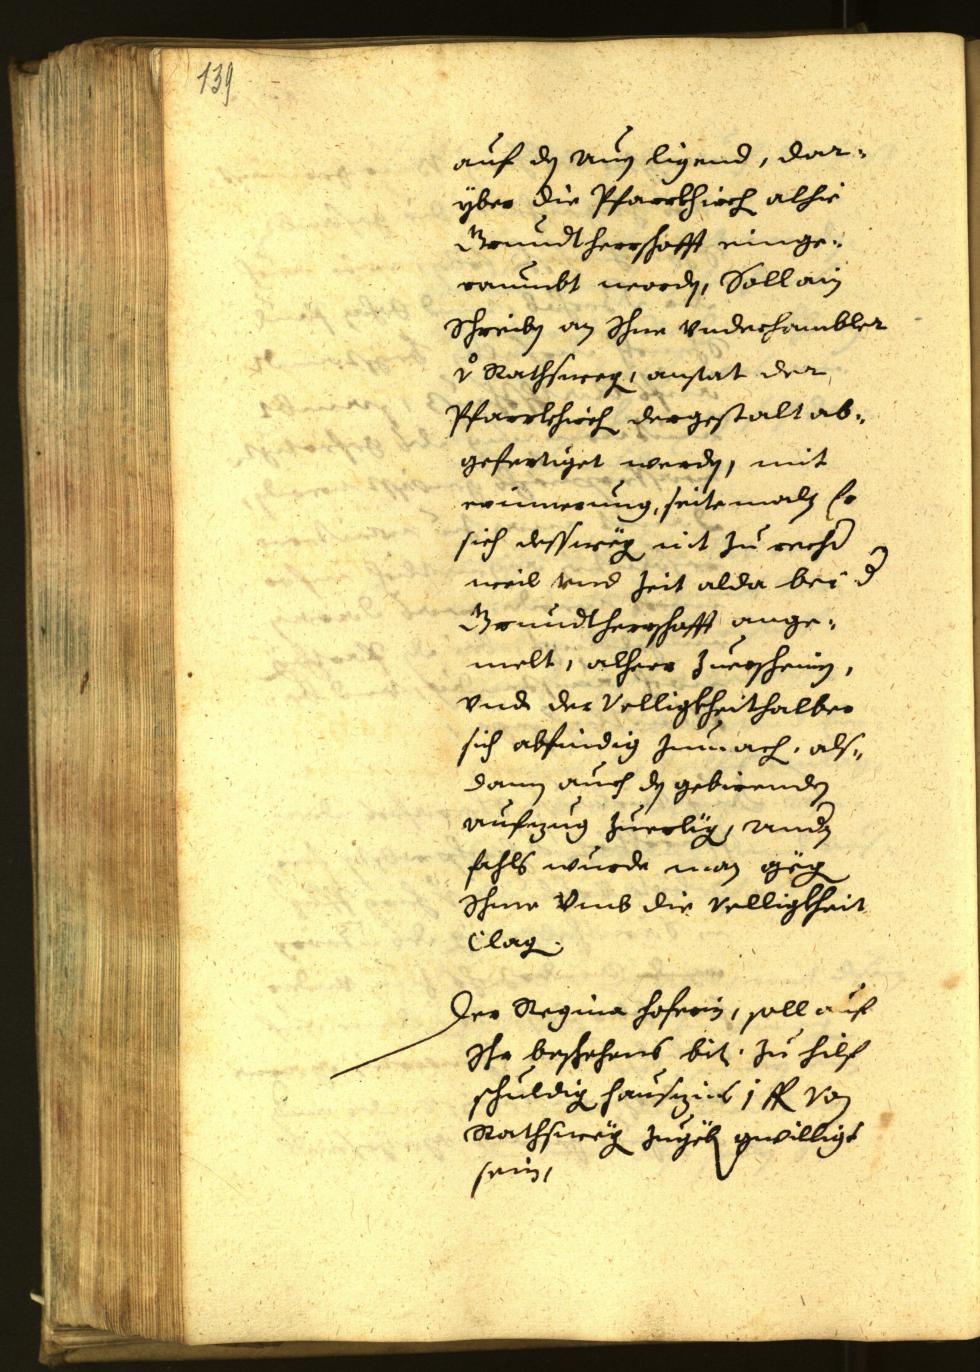 139
auf dn Rain ligend, dar¬
yber die Pfarrkhirch alhie
Grundtherrschafft einge¬
raumbt worden, Soll ain
Schreiben an Ihne Undterhambler
v Rathsweg, anstat der
Pfarrkhirch dergestalt ab¬
gefertiget werden, mit
erinnerung, seitemaln Er
sich dessweg nit zu rechter
weil und zeit alda bei der
Grundtherrschafft ange¬
melt, alhero zuerscheinen,
und der Velligkheit halber
sich abfindig zumach, als¬
dann auch dn gebirenden
aufzug zuerlig, andern
fahls wurde man geg
Ihme Umb die Velligkheit
Clag.
Der Regina Hoferin, soll auf
Ihr beschehens bit. zu hilf
schuldig hauszins 1 fl Von
Rathsweg zugeb gwilligt
sein,